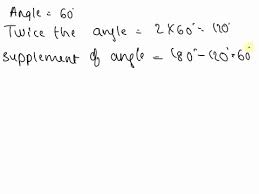 Angle = 60°
Twice the angle = 2 × 60° = 120°
supplement of angle = 180° - 120° = 60°